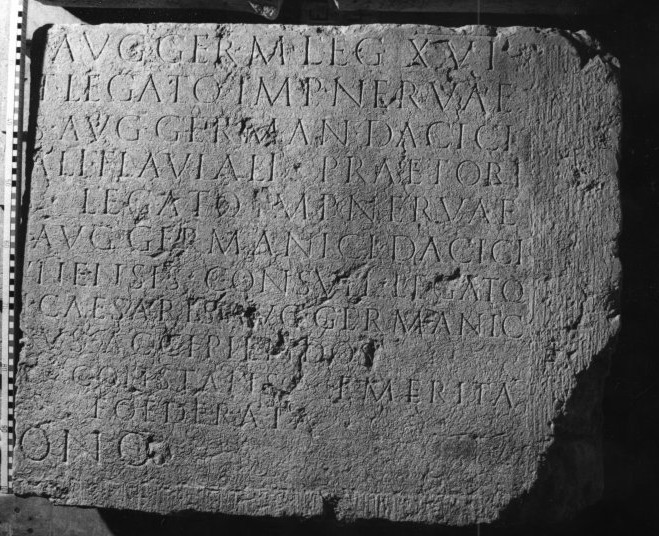 AVG·GERM·LEG·XVI
LEGATO·IMP·NERVAE
AVG·GERMAN·DACICI
ALI·FLAVIALI·PRAETORI
LEGATO·IMP·NERVAE
AVG·GERMANICI·DACICI
IENSIS·CONSVLI·LEGATO
CAESARIS·AVG·GERMANIC
EMERITA
FOEDERATA